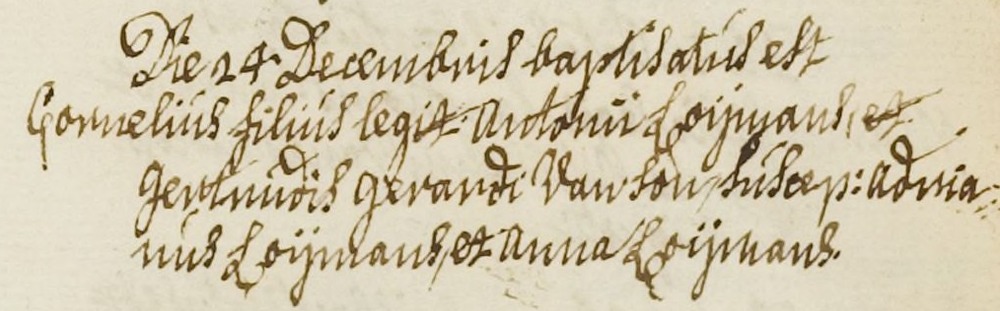 Die 24 Decembris baptisatus est
Cornelius filius legit. Antonii Loijmans, et
Gertrudis Gerardi Van son, suscep: Adria-
nus Loijmans, et Anna Loijmans.